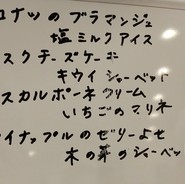 コナツのブラマンジェ
塩ミルクアイス
スクチーズケーキ
キウイシャーベット
スカルポーネクリーム
いちごのマリネ
イナップルのゼリーよせ
木の芽のシャーベッ